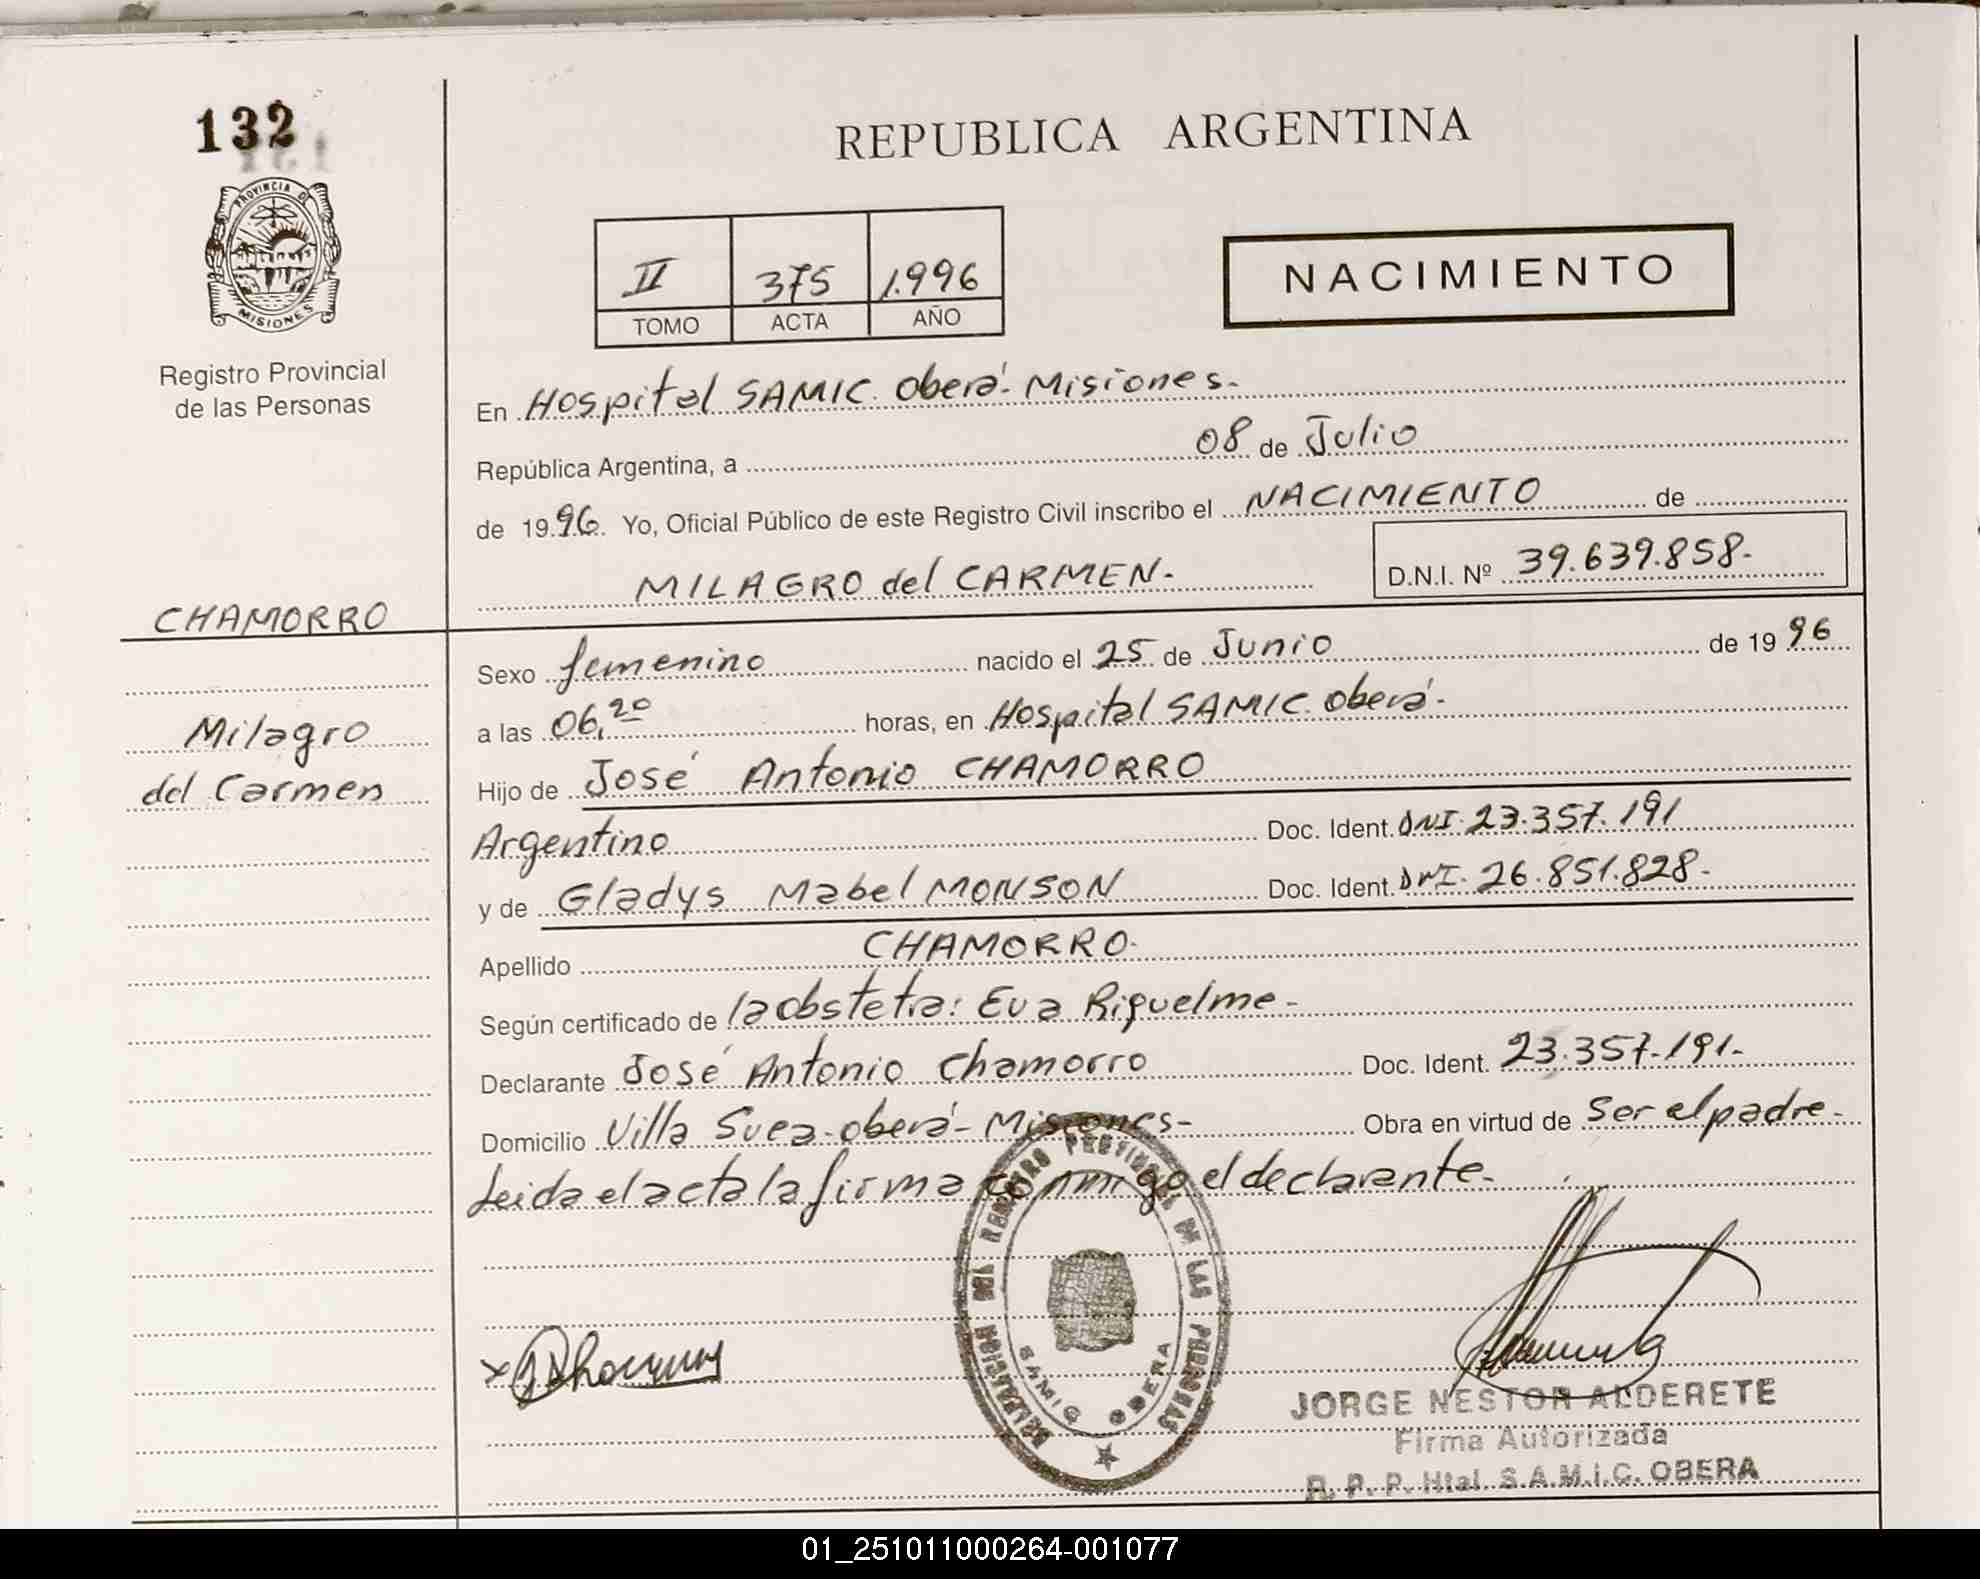 132
PROVINCIA DE
MISIONES
Registro Provincial
de las Personas
REPUBLICA ARGENTINA
II 375 1.996
TOMO ACTA AÑO
NACIMIENTO
En Hospital SAMIC. Oberá - Misiones.-
República Argentina, a 08 de Julio
de 1996. Yo, Oficial Público de este Registro Civil inscribo el NACIMIENTO de
MILAGRO del CARMEN.- D.N.I. Nº 39.639.858.-
CHAMORRO
Milagro
del Carmen
Sexo femenino nacido el 25 de Junio de 1996
a las 06,20 horas, en Hospital SAMIC. Oberá.-
Hijo de José Antonio CHAMORRO
Argentino Doc. Ident. DNI. 23.357.191
y de Gladys Mabel MONSON Doc. Ident. DNI. 26.851.828.-
Apellido CHAMORRO.
Según certificado de la obstetra: Eva Riquelme -
Declarante José Antonio Chamorro Doc. Ident. 23.357.191.-
Domicilio Villa Svea - oberá - Misiones - Obra en virtud de Ser el padre.-
Leida el acta la firma conmigo el declarante.-
DELEGACION DEL REGISTRO PROVINCIAL DE LAS PERSONAS
SAMIC OBERA
JORGE NESTOR ALDERETE
Firma Autorizada
R. P. P. Htal. S.A.M.I.C. OBERA
01_251011000264-001077